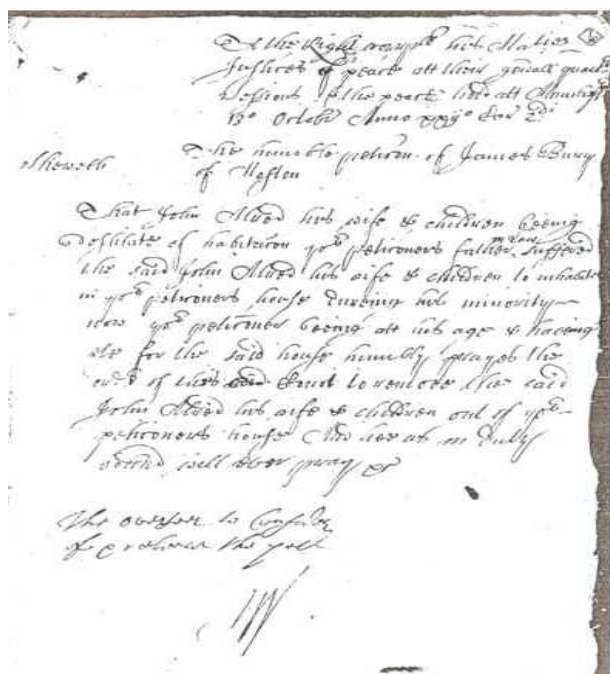 To the Right worpll his Maties
Justices of peace att their genall quartr
Sessions of the peace held att Manchestr
13o Octobr Anno xxijo Car 2di
Sheweth
The humble peticon of James Bury
of Heslen
That John Alred his wife & children being
destitute of habitacon yor peticoners father in Law suffered
the said John Alred his wife & children to inhabite
in yor peticoners house dureing his minority
now yor peticoner being att his age & haveing
use for the said house humbly prayes the
ordr of this Court to remove the said
John Alred his wife & children out of yor
peticoners house And hee as in duty
bound will ever pray &c
The overseer to Consider
& releeve the pet